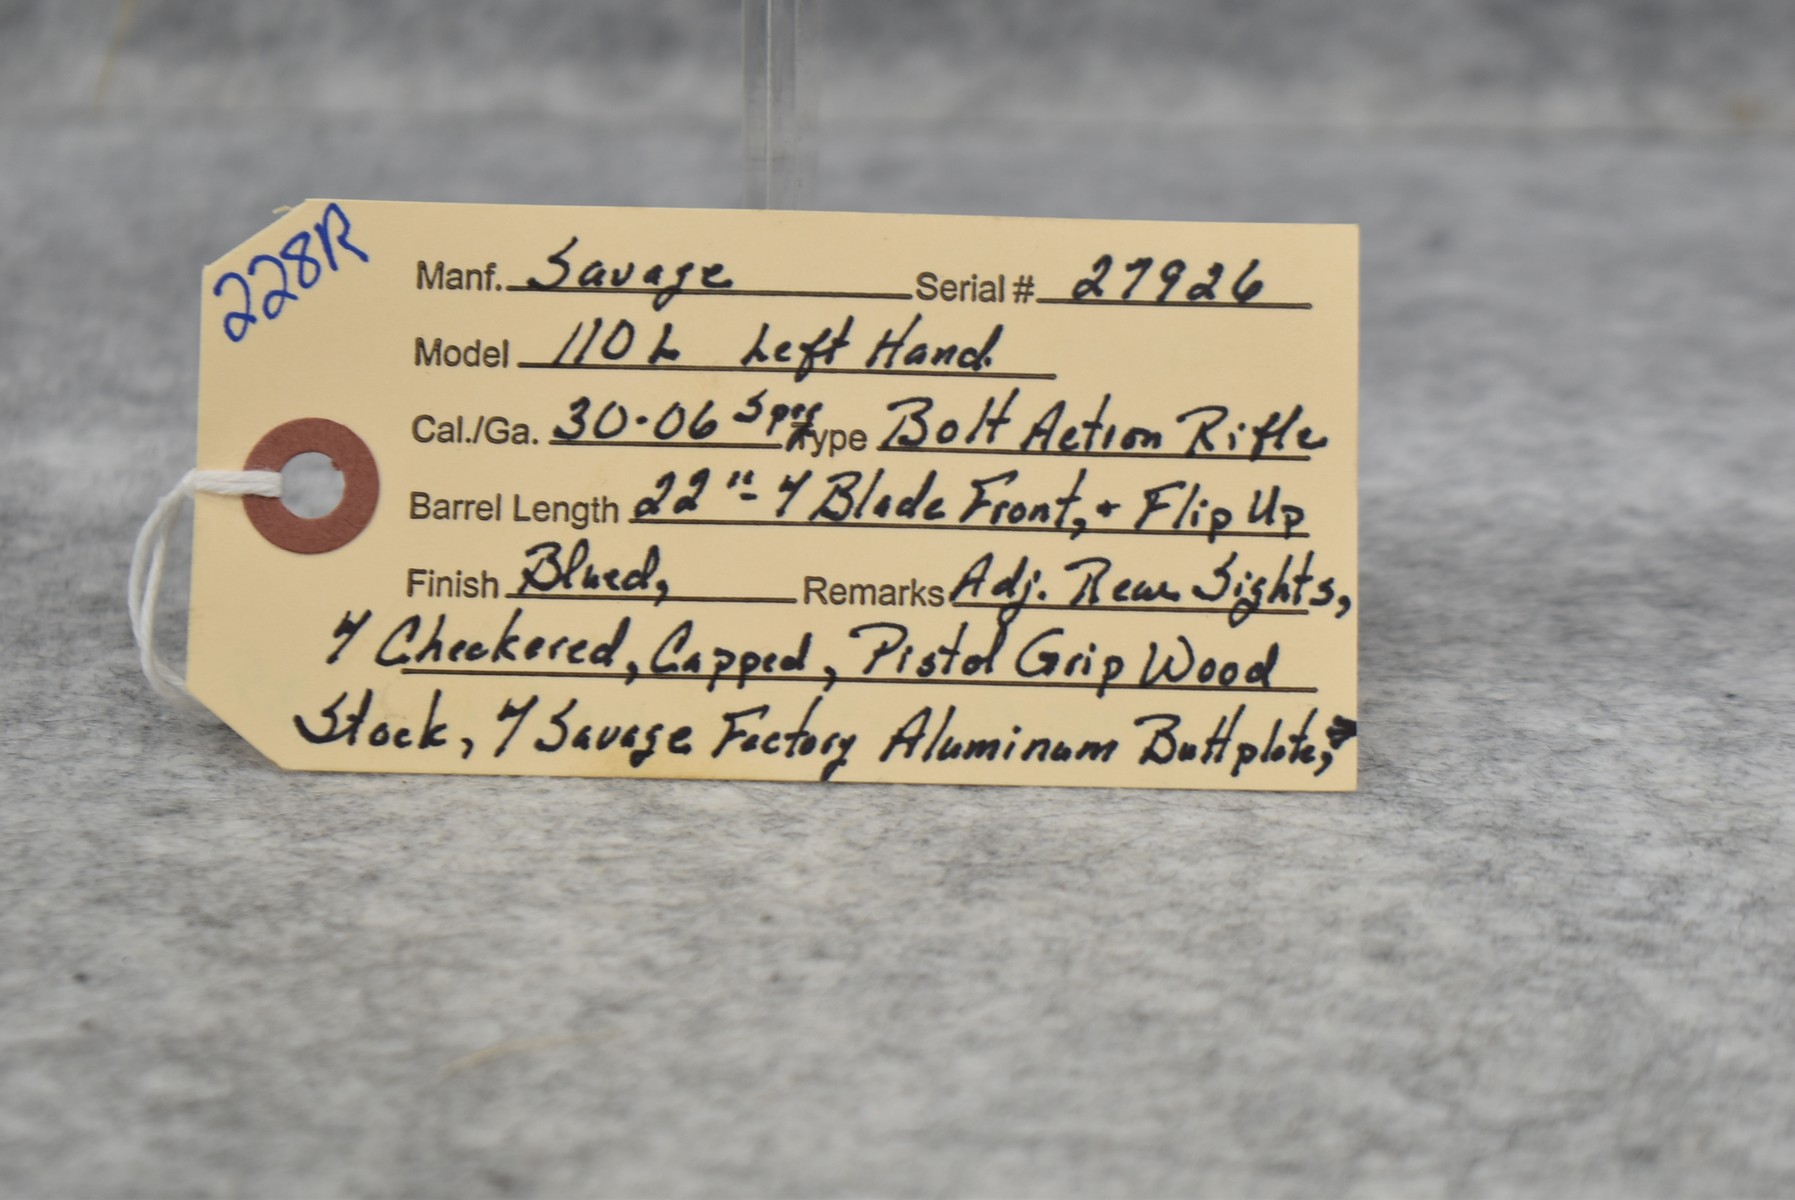 228R
Manf. Savage Serial # 27926
Model 110 L Left Hand
Cal./Ga. 30-06 Sprg Type Bolt Action Rifle
Barrel Length 22" - Blade Front, + Flip Up
Finish Blued, Remarks Adj. Rear Sights,
Checkered, Capped, Pistol Grip Wood
Stock, Savage Factory Aluminum Buttplate, →